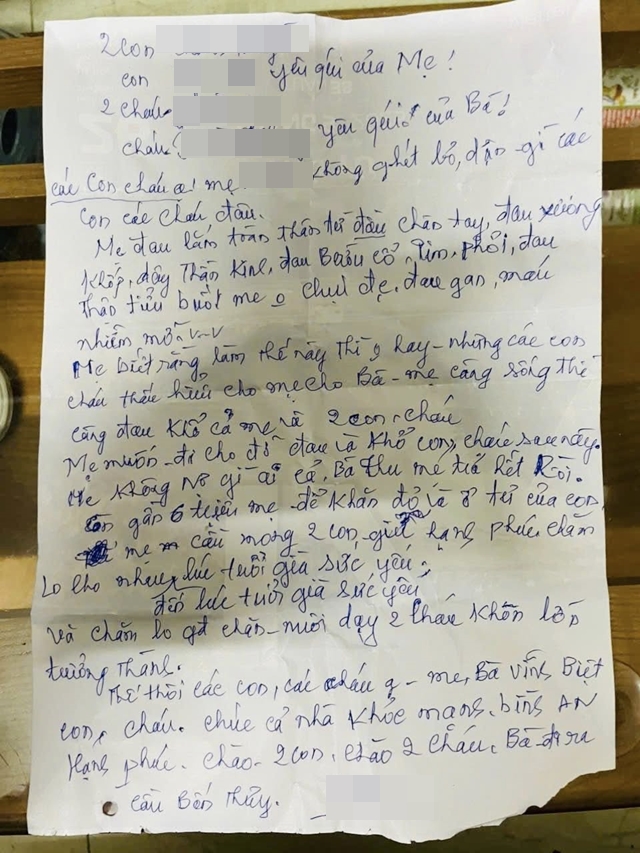 2 con
con yêu quí của Mẹ!
2 cháu
cháu yêu quí của Bà!
không ghét bỏ, dận gì các
các con cháu ạ! mẹ
con các cháu đâu.
Mẹ đau lắm toàn thân từ đầu chân tay, đau xương
khớp, dây thần kinh, đau Bướu cổ, Tim, phổi, đau
thận tiểu buốt mẹ o chịu đc, đau gan, máu
nhiễm mỡ v-v
Mẹ biết rằng làm thế này thì o hay những các con
cháu thấu hiểu cho mẹ cho Bà - mẹ càng sống thì
càng đau khổ cả mẹ và 2 con, cháu
Mẹ muốn đi cho đỡ đau và khổ con, cháu sau này.
Mẹ không nợ gì ai cả, Bà thu mẹ trả hết Rồi.
Còn gần 6 triệu mẹ để khăn đỏ và ở tủ của con,
mẹ cầu mong 2 con giữ hạnh phúc. chăm
lo cho nhau, lúc tuổi già sức yếu,
đến lúc tuổi già sức yếu,
và chăm lo gđ chăn nuôi dạy 2 cháu khôn lớn
trưởng thành.
Thế thôi các con, các cháu - mẹ, Bà vĩnh Biệt
con, cháu. chúc cả nhà khỏe mạnh, bình AN
Hạnh phúc. chào 2 con, chào 2 cháu, Bà đi ra
cầu Bến Thủy.